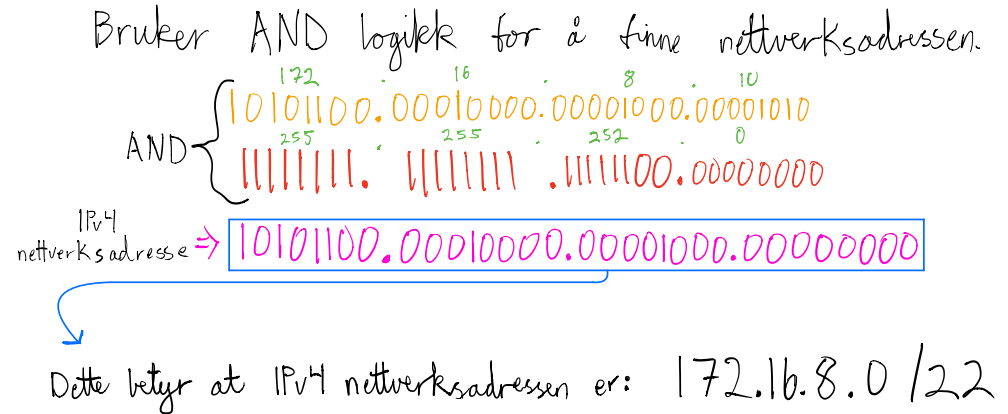 Bruker AND logikk for å finne nettverksadressen.
172 . 16 . 8 . 10
10101100.00010000.00001000.00001010
AND
255 . 255 . 252 . 0
11111111.11111111.11111100.00000000
IPv4
nettverksadresse => 10101100.00010000.00001000.00000000
Dette betyr at IPv4 nettverksadressen er: 172.16.8.0 /22